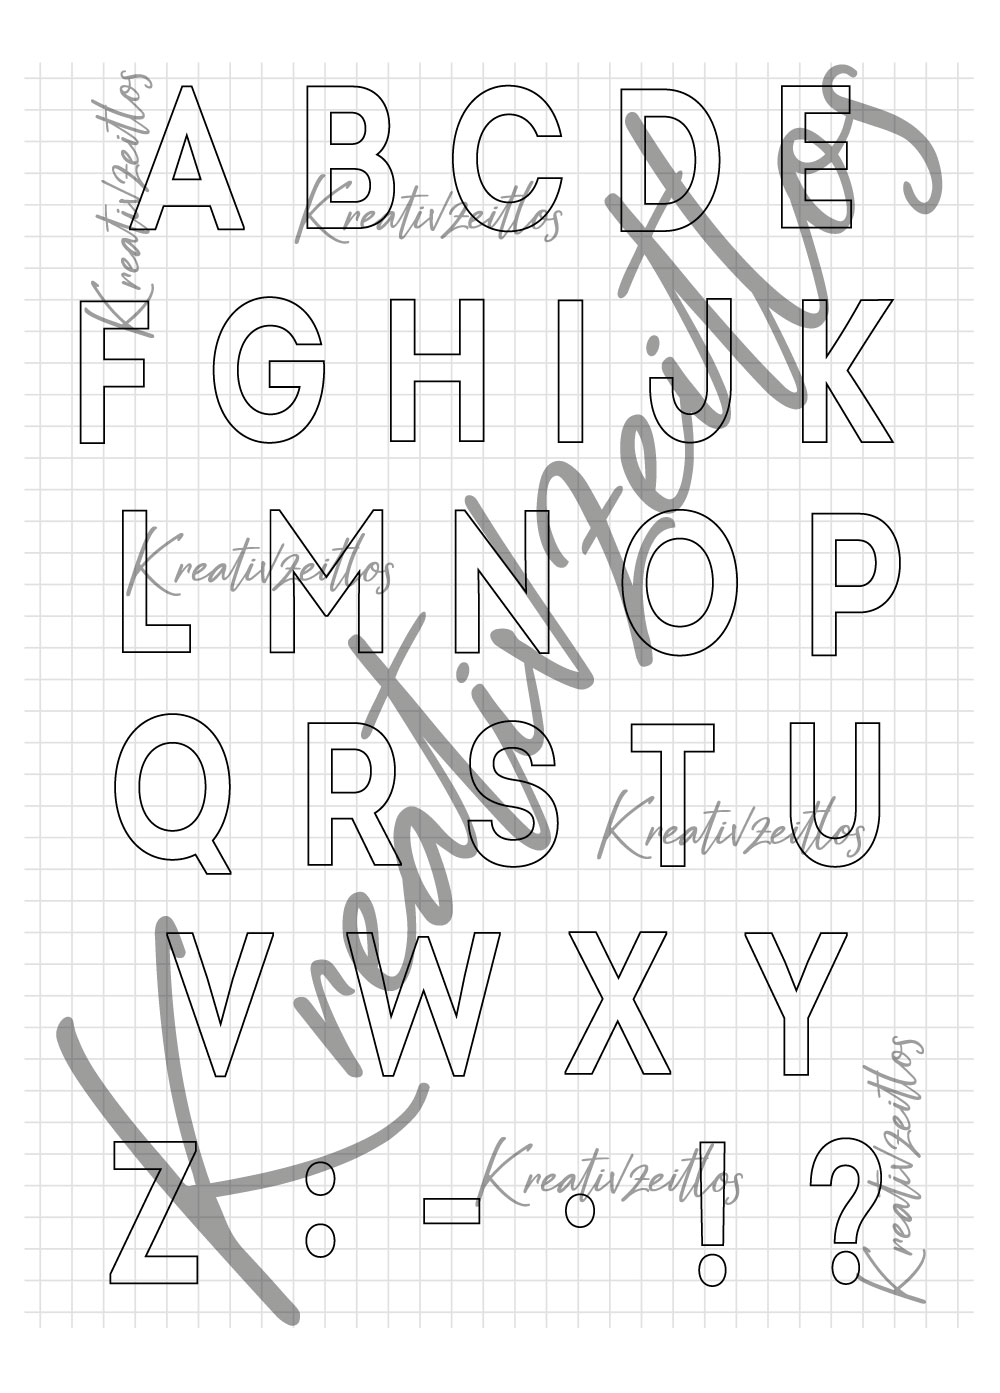 A B C D E
F G H I J K
L M N O P
Q R S T U
V W X Y
Z : - · ! ?
Kreativzeitlos
Kreativzeitlos
Kreativzeitlos
Kreativzeitlos
Kreativzeitlos
Kreativzeitlos
Kreativzeitlos